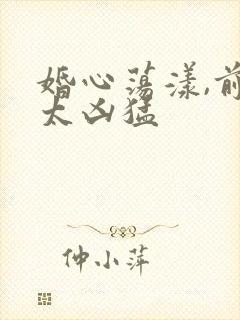 婚心荡漾,前
太凶猛
仲小萍